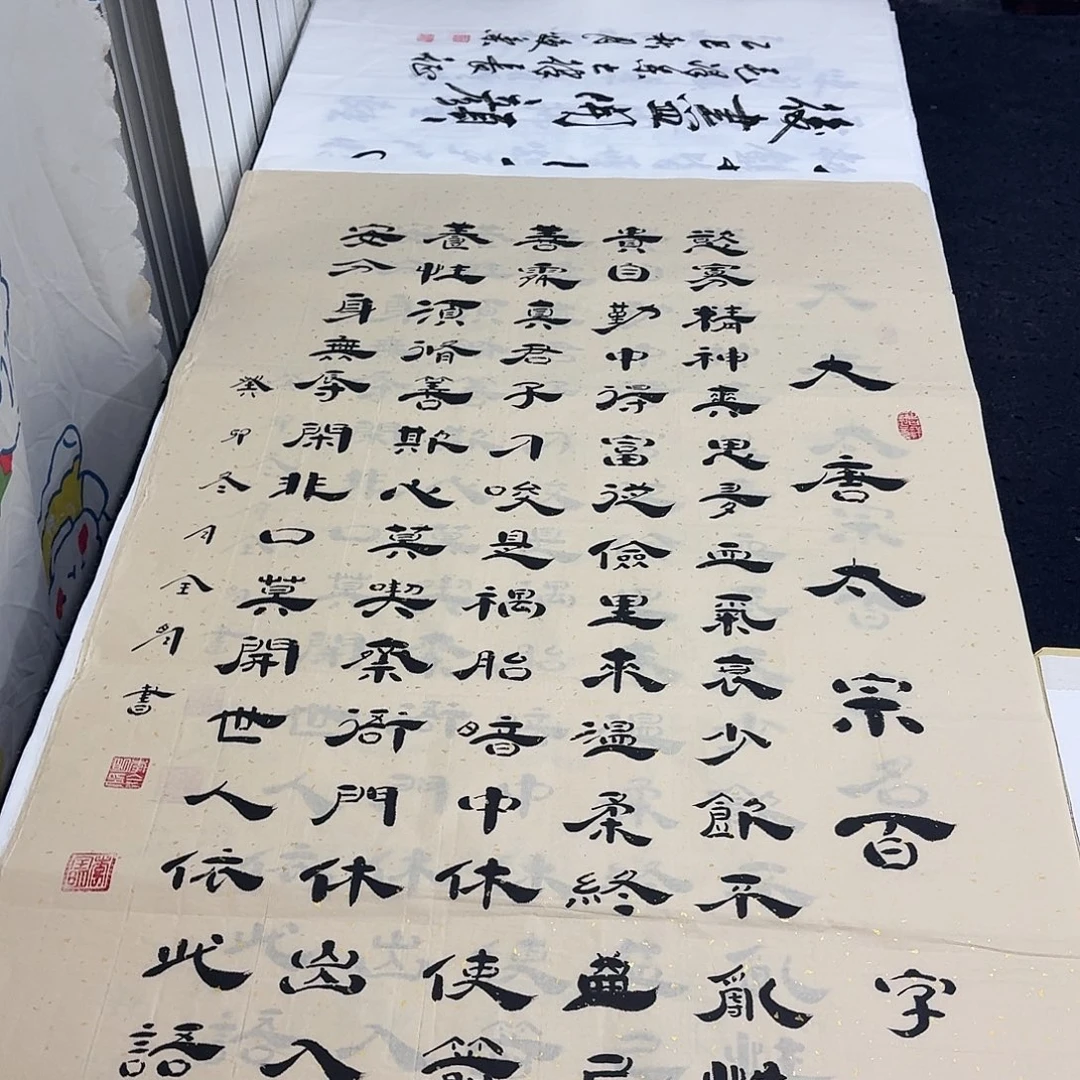 大唐太宗百字
慾寡精神爽思多血氣衰少飲不亂性
貴自勤中得富從儉里來溫柔終益己
善處真君子刁唆是禍胎暗中休使箭
養性須脩善欺心莫喫齋衙門休出入
安分身無辱閑非口莫開世人依此語
癸卯冬月全書
後盡開顏
毛澤東七律長征
乙巳秋月